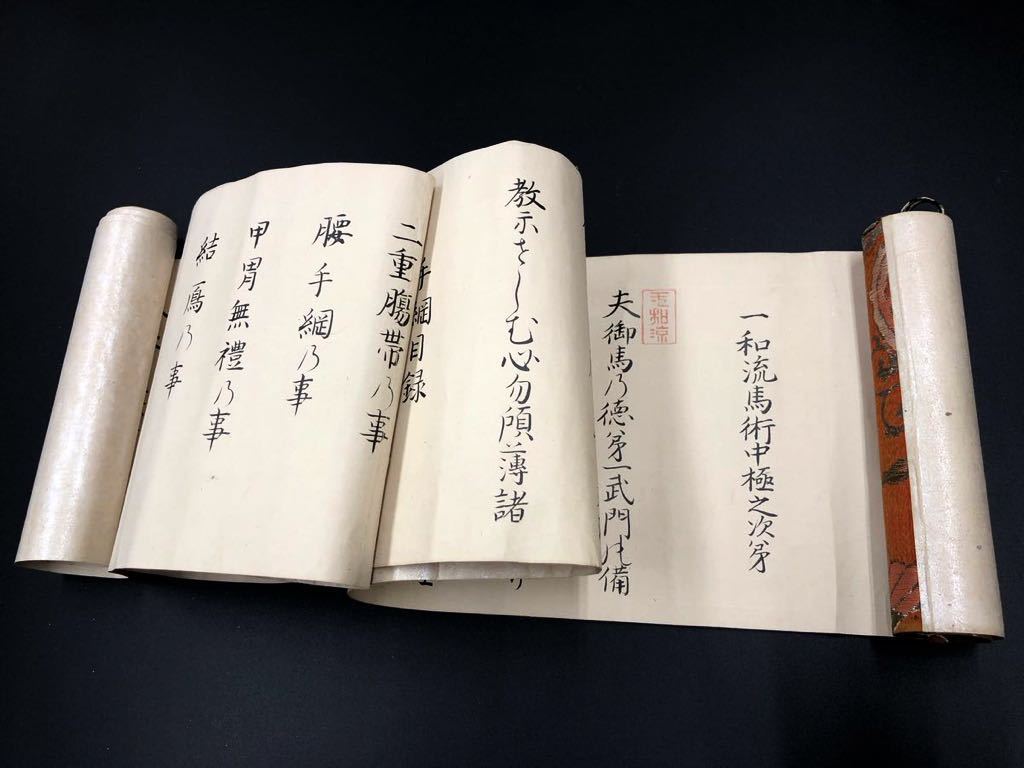 一和流馬術中極之次第
夫御馬乃徳第一武門の備
教示せしむ必勿頒薄諸
手綱目録
二重腹帯乃事
腰手綱乃事
甲冑無禮乃事
結馬乃事